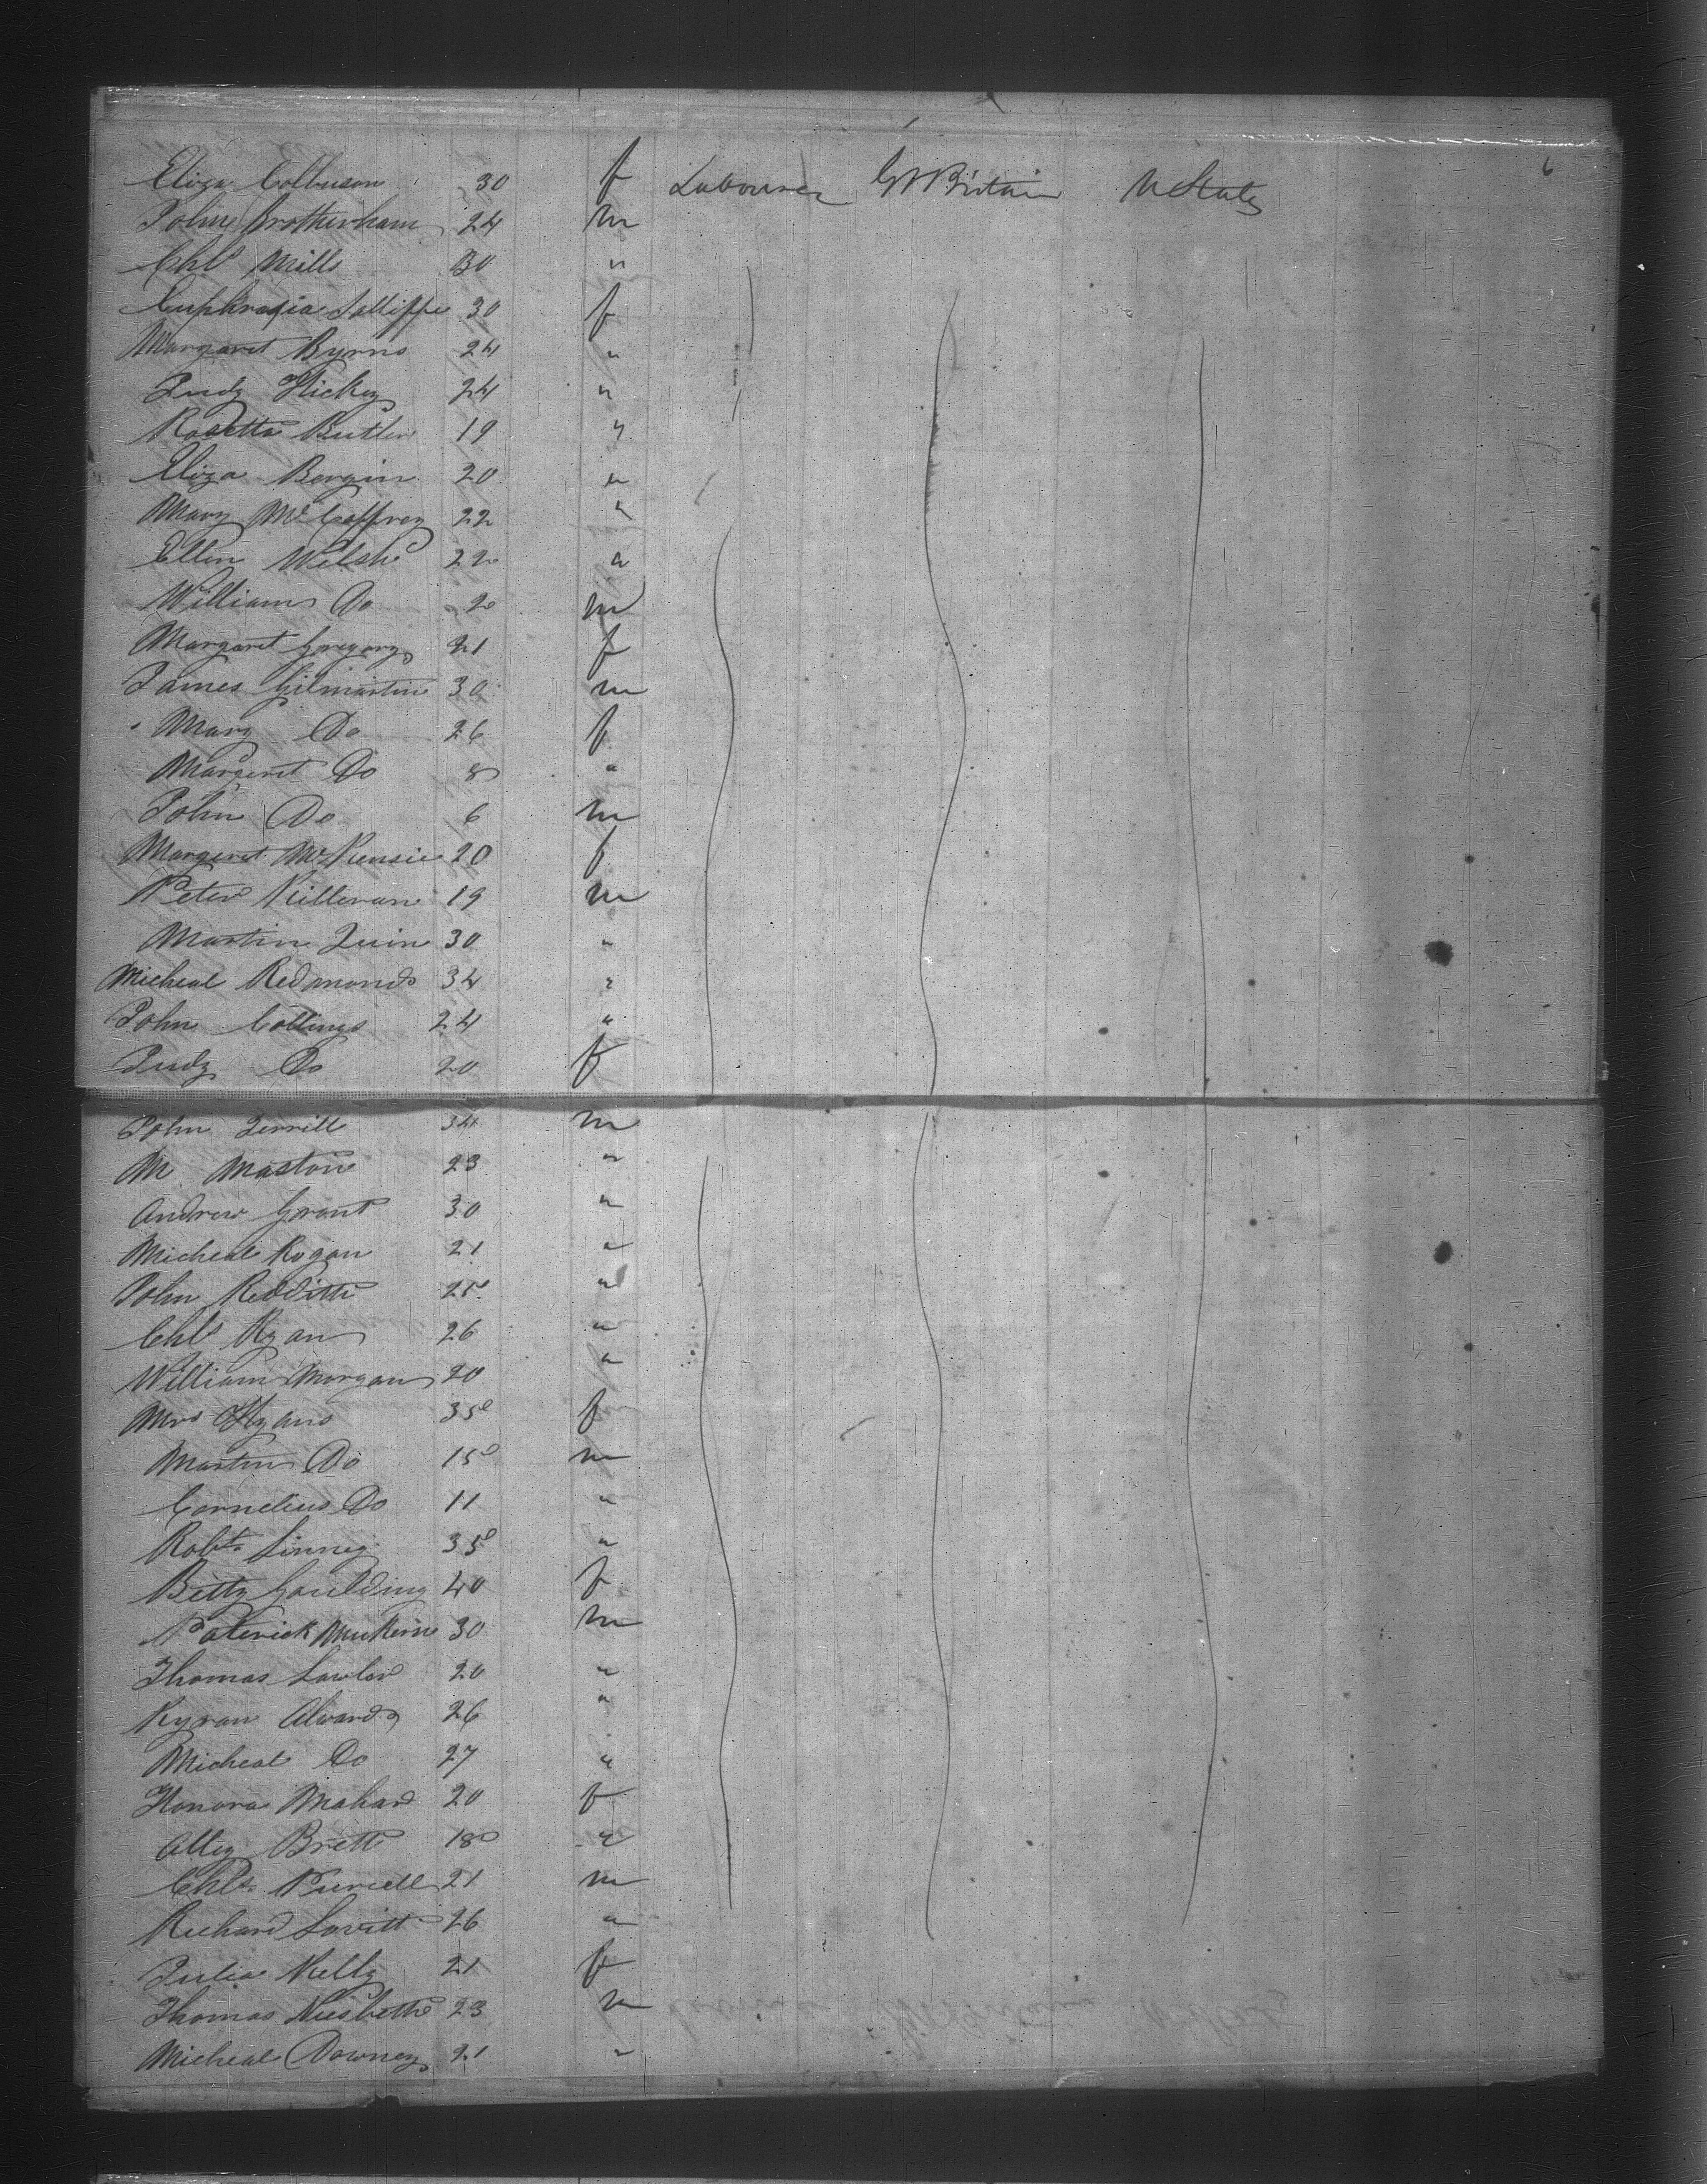 6
Eliza Colbuson 30 f Labourer Gt Britain U States
John Brotherham 24 m
Chls Mills 30 "
Euphrasia Sallippe 30 f
Margaret Byrns 24 "
Judy Hickey 24 "
Rosetta Butler 19 "
Eliza Bergin 20 "
Mary McCaffrey 22 "
Ellen Welsh 22 "
William Do 2 m
Margaret Gregory 21 f
James Gilmartin 30 m
Mary Do 26 f
Margeret Do 8 "
John Do 6 m
Margeret McKensie 20 f
Peter Killeran 19 m
Martin Quin 30 "
Micheal Redmond 34 "
John Collings 24 "
Judy Do 20 f
John Terrill 34 m
M Maston 23 "
Andrew Grant 30 "
Micheal Rogan 21 "
John Redditt 25 "
Chls Ryan 26 "
William Morgan 20 "
Mrs Hyans 35 f
Martin Do 15 m
Cornelius Do 11 "
Robt Linney 35 "
Betty Goulding 40 f
Paterick 30 m
Thomas Lawlor 20 "
Kyran Alward 26 "
Micheal Do 27 "
Honora Mahar 20 f
Alley Brett 18 "
Chls Purcell 21 m
Richard Lovitt 26 "
Julia Kelly 21 f
Thomas Niesbette 23 m
Micheal Downey 21 "